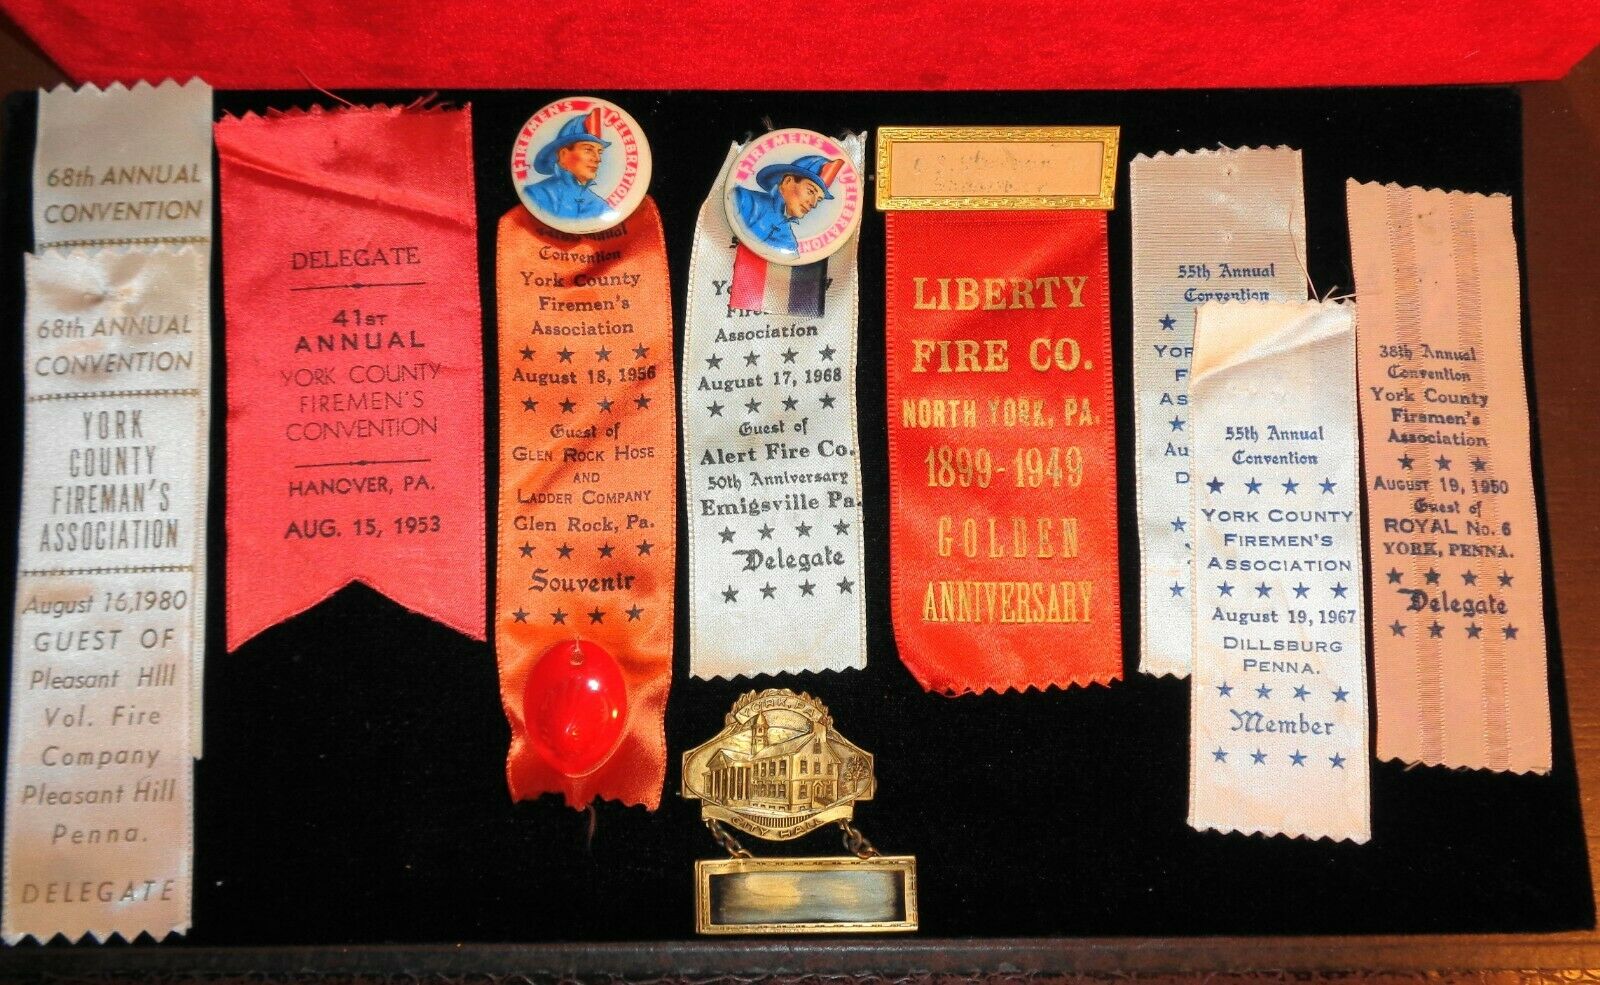 68th ANNUAL
CONVENTION
68th ANNUAL
CONVENTION
YORK
COUNTY
FIREMAN'S
ASSOCIATION
August 16, 1980
GUEST OF
Pleasant Hill
Vol. Fire
Company
Pleasant Hill
Penna.
DELEGATE
DELEGATE
41ST
ANNUAL
YORK COUNTY
FIREMEN'S
CONVENTION
HANOVER, PA.
AUG. 15, 1953
FIREMEN'S CELEBRATION!
Annual
Convention
York County
Firemen's
Association
August 18, 1956
Guest of
GLEN ROCK HOSE
AND
LADDER COMPANY
Glen Rock, Pa.
Souvenir
FIREMEN'S CELEBRATION!
Association
August 17, 1968
Guest of
Alert Fire Co.
50th Anniversary
Emigsville Pa.
Delegate
YORK, PA.
CITY HALL
LIBERTY
FIRE CO.
NORTH YORK, PA.
1899-1949
GOLDEN
ANNIVERSARY
55th Annual
Convention
55th Annual
Convention
YORK COUNTY
FIREMEN'S
ASSOCIATION
August 19, 1967
DILLSBURG
PENNA.
Member
38th Annual
Convention
York County
Firemen's
Association
AUGUST 19, 1950
Guest of
ROYAL No. 6
YORK, PENNA.
Delegate